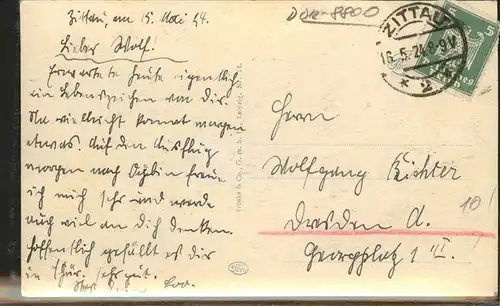 Zittau, am 15. Mai 24.
Lieber Wolf!
Erwartete heute eigentlich
ein Lebenszeichen von dir.
Na vielleicht kommt morgen
etwas. Auf den Ausflug
morgen nach Oybin freue
ich mich sehr und werde
auch viel an dich denken.
Hoffentlich gefällt es dir
in Thür. sehr gut.
DDR-8800
ZITTAU
16.5.24.8-9V
* 2
5
5
Herrn
Wolfgang Richter
Dresden A.
Georgplatz 1 III.
10!
Trinks & Co. G. m. b. H., Leipzig